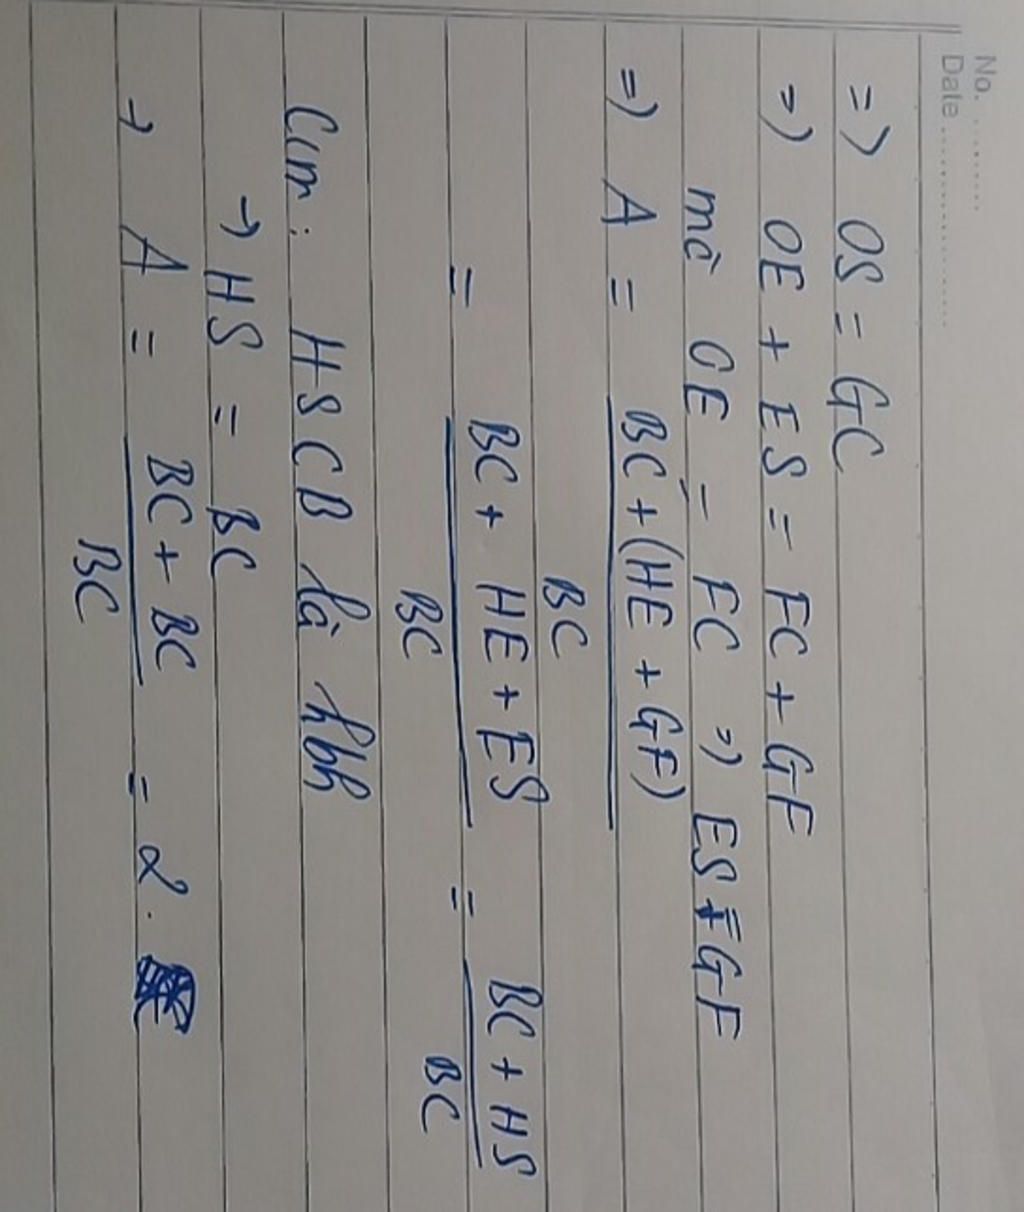 No. ..........
Date ..........................
=> OS = GC
=> OE + ES = FC + GF
mà OE = FC => ES = GF
=> A = BC + (HE + GF)
BC
= BC + HE + ES = BC + HS
BC BC
Cm: HSCB là hbh
→ HS = BC
→ A = BC + BC = 2.
BC